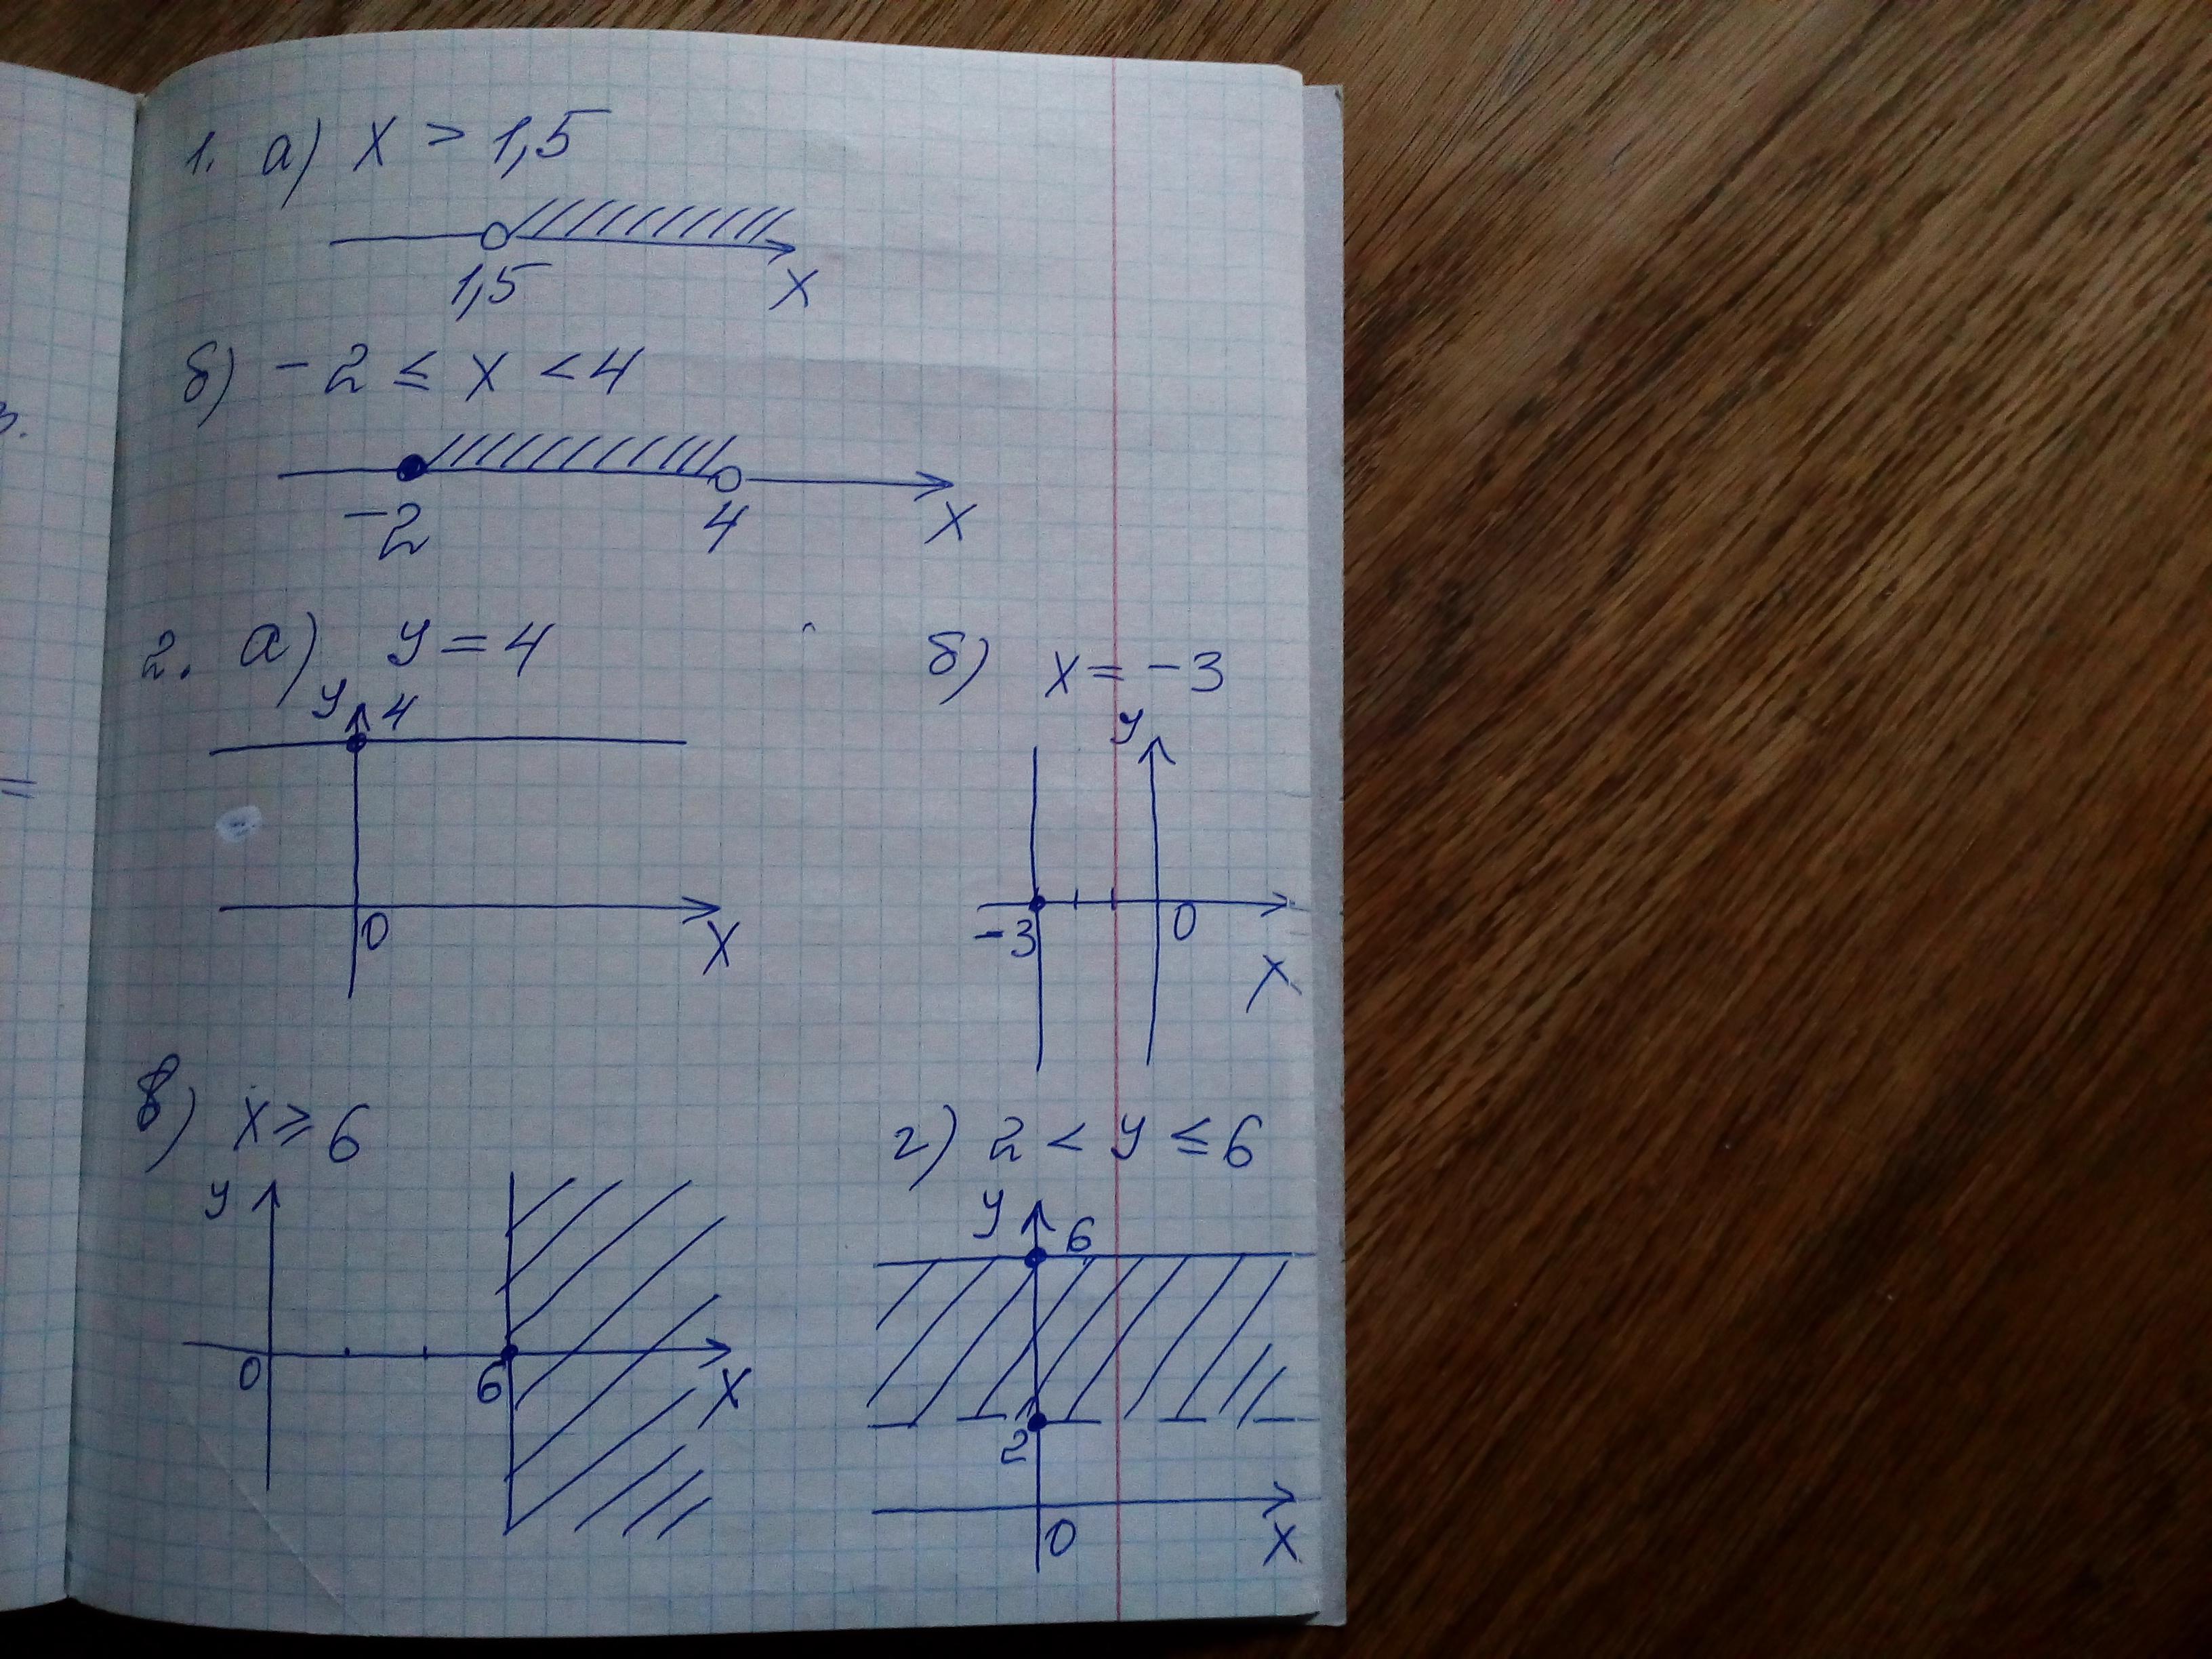 1. а) x > 1,5
1,5 x
б) -2 ≤ x < 4
-2 4 x
2. а) y = 4
y 4
0 x
б) x = -3
y
-3 0 x
в) x ≥ 6
y
0 6 x
г) 2 < y ≤ 6
y 6
2
0 x
=